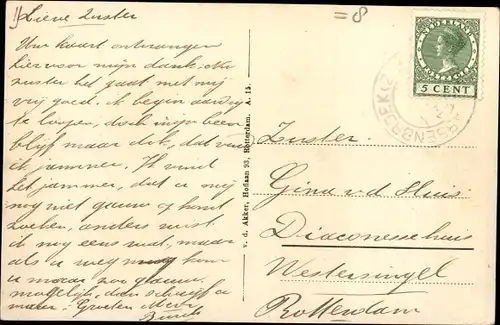 Lieve Zuster
Uw kaart ontvangen
hiervoor mijn dank. Nu
zuster het gaat met mij
vrij goed. Ik begin aardig
te loopen, doch mijn been
blijft maar dik, dat vind
ik jammer. Ik vind
het jammer, dat u mij
nog niet gauw op komt
zoeken, anders
ik nog eens wat, maar
als u weg kom
u maar zoo gauw
mogelijk, dan schrijf u
maar. Groeten
= 8
NEDERLAND
5 CENT
v. d. Akker, Hoflaan 93, Rotterdam. A. 15.
Zuster
Gina v.d. Sluis
Diaconessehuis
Westersingel
Rotterdam